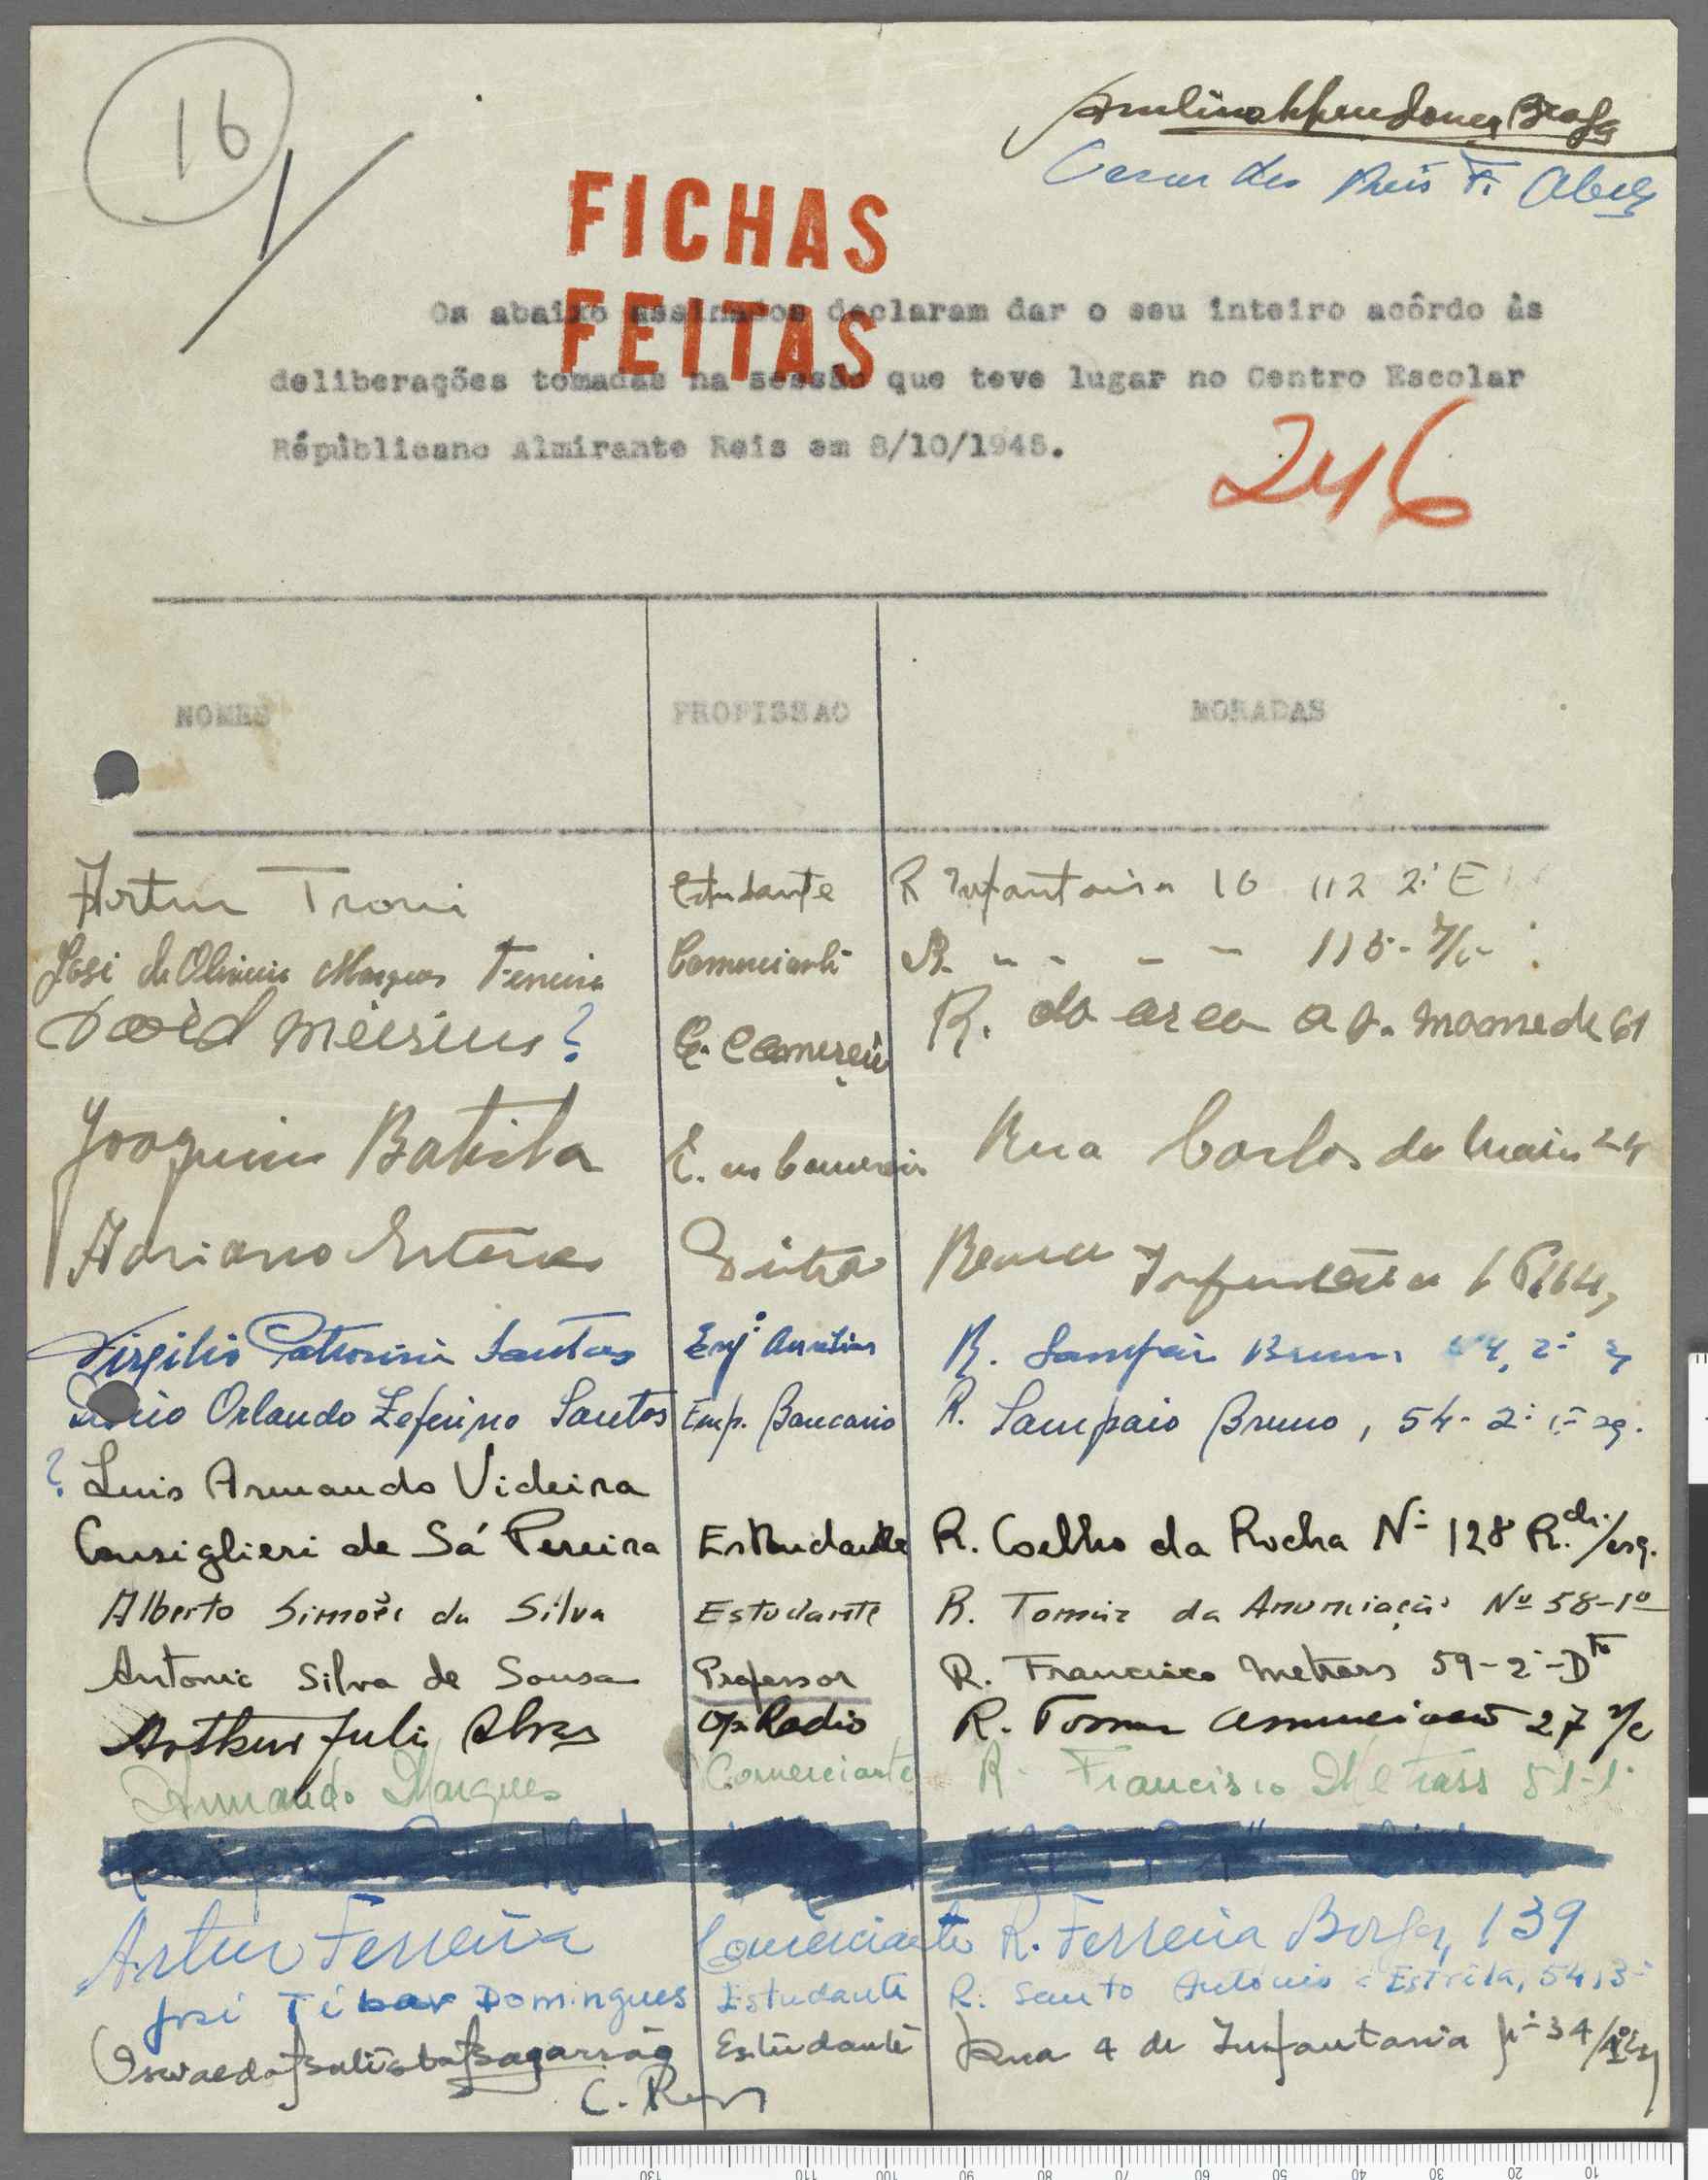 16
FICHAS
FEITAS
Os abaixo assinados declaram dar o seu inteiro acôrdo às
deliberações tomadas na sessão que teve lugar no Centro Escolar
Républicano Almirante Reis em 8/10/1945.
246
NOMES PROFISSAO MORADAS
Artur Troni Estudante R Infantaria 16 112 2º E
José de Oliveira Marques Ferreira Comerciante R. " " - - 115- r/c-
David ? E. Comercio R. da 61
Joaquim Batista E. no Comercio Rua Carlos da Maia 24
Adriano Esteves Infantaria 16
Virgilio Patrocinio Santos Auxiliar R. Sampaio Bruno 2º
Orlando Zeferino Santos Emp. Bancario R. Sampaio Bruno, 54-2º esq.
? Luis Armando Videira
Consiglieri de Sá Pereira Estudante R. Coelho da Rocha Nº 128 R. ch./esq.
Alberto Simões da Silva Estudante R. Tomáz da Anunciação Nº 58-1º
Antonio Silva de Sousa Professor R. Francisco Metrass 59-2º-Dto
Arthur Julio Alves Op. Radio R. Tomas Anunciação 27 r/c
Armando Marques Comerciante R. Francisco Metrass 51-1º
Artur Ferreira Comerciante R. Ferreira Borges, 139
José Tibar Domingues Estudante R. Santo Antonio à Estrêla, 54, 3º
Estudante Rua 4 de Infantaria nº 34
C.
130 110 100 90 80 70 60 50 40 30 20 10